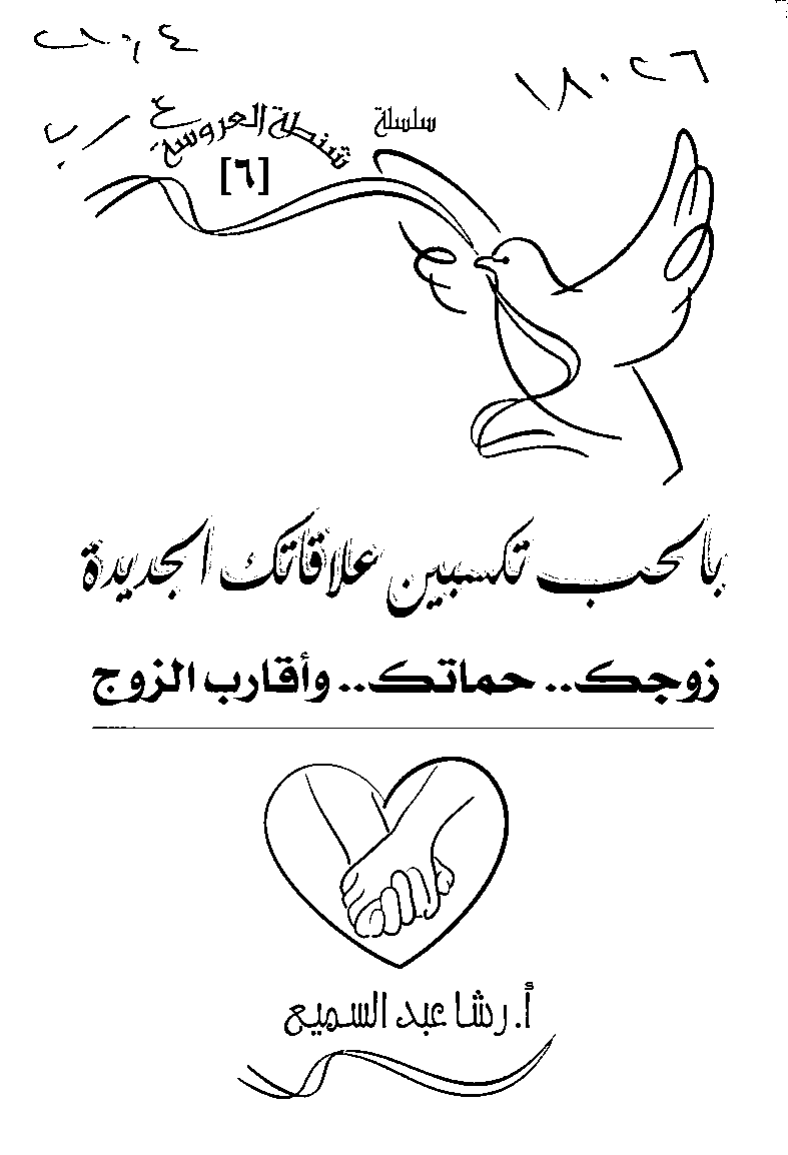 ١٨٠٢٦
سلسلة
شنطة العروسة
[٦]
بالحب تكسبين علاقاتك الجديدة
زوجك.. حماتك.. وأقارب الزوج
أ. رشا عبد السميع